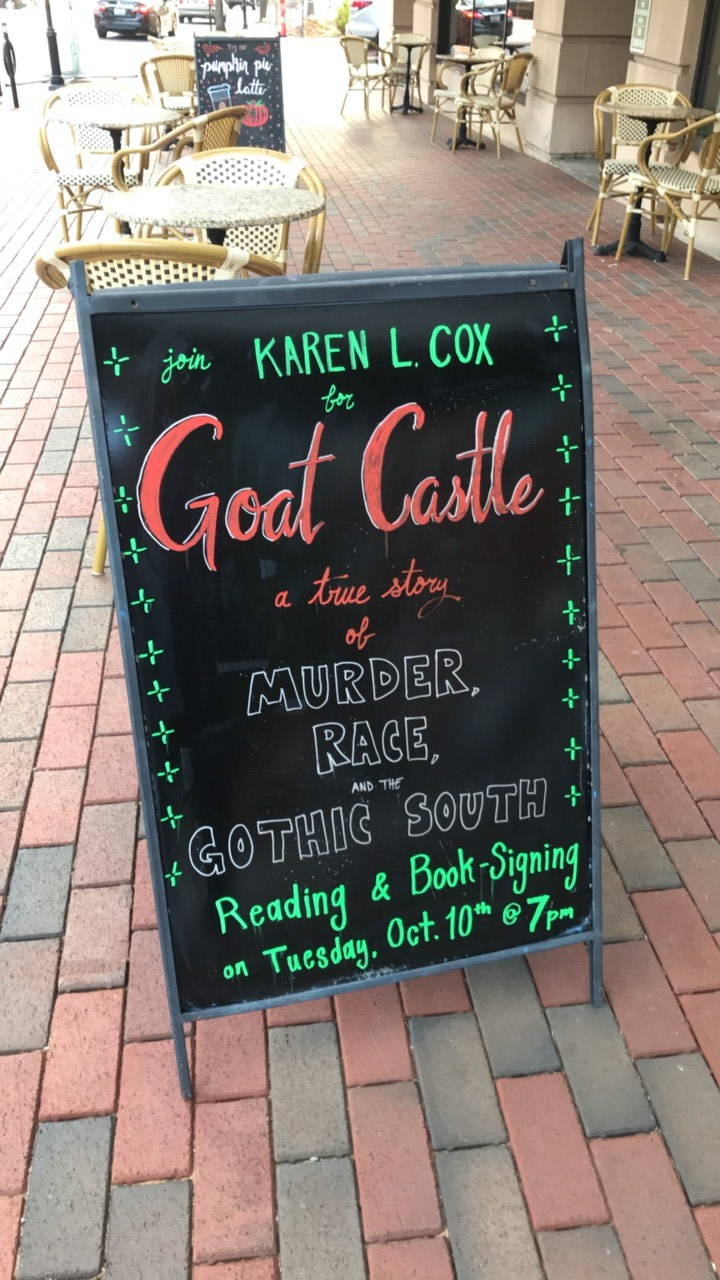 try our
pumpkin pie
latte
join KAREN L. COX
for
Goat Castle
a true story
of
MURDER,
RACE,
AND THE
GOTHIC SOUTH
Reading & Book-Signing
on Tuesday, Oct. 10th @ 7pm